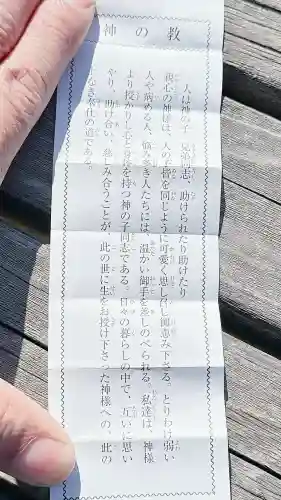 神の教
人は神の子 兄弟同志、助けられたり助けたり
親心の神様は、人の子皆を同じように可愛く思し召し御恵み下さる。とりわけ弱い
人や病める人、悩み多き人たちには、温かい御手を差しのべられる。私達は、神様
より授かりし心と身を持つ神の子同志である。日々の暮らしの中で、互いに思い
やり、助け合い、慈しみ合うことが、此の世に生をお授け下さった神様への、此の
なき奉仕の道である。